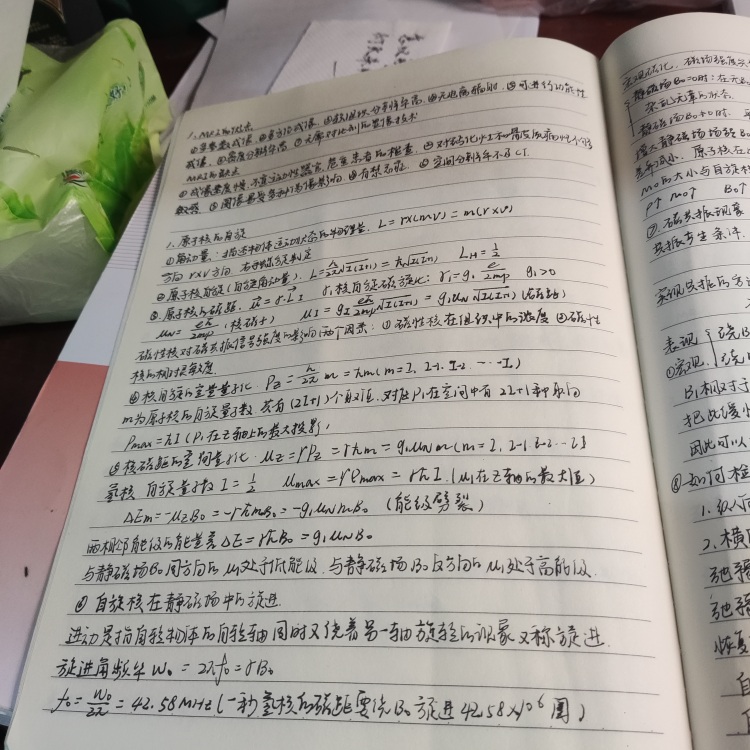 1. MRI的优点
①多参数成像 ②多方位成像 ③软组织分辨率高 ④无电离辐射 ⑤可进行功能性
成像 ⑥密度分辨率高
MRI的缺点
①成像速度慢，不宜运动性器官、危重患者的检查 ②对钙化灶和骨皮质病灶不够
敏感 ③图像易受多种伪影影响 ④有禁忌症 ⑤空间分辨率不及CT.
1. 原子核的自旋
①角动量：描述物体运动状态的物理量. L=r×(mv)=m(r×v)
方向 r×v方向 右手螺旋判定
②原子核自旋(自旋角动量). L=h/2π√I(I+1)=ħ√I(I+1) I_H=1/2
③原子核的磁矩. μ=γ·L_I γ_I核自旋磁旋比: γ_I=g_I e/2mp g_I>0
μ_N=eħ/2mp (核磁子) μ_I=g_I eħ/2mp√I(I+1)=g_Iμ_N√I(I+1) (磁矩)
磁性核对磁共振信号强度的影响(两个因素：①磁性核在组织中的浓度 ②磁性
核的相对灵敏度
④核自旋的空间量子化 P_Z=h/2π m=ħm(m=I, I-1, I-2 …-I)
m为原子核的自旋量子数 共有(2I+1)个取值. 对应P_I在空间中有2I+1种取向
Pmax=ħI(P_I在Z轴上的最大投影)
⑤核磁矩的空间量子化. μ_Z=γP_Z=γħm=g_Iμ_N m(m=I, I-1 I-2 … -I)
氢核 自旋量子数I=1/2 μmax=γPmax=γħI.(μ_I在Z轴的最大值)
ΔEm=-μ_ZB₀=-γħmB₀=-g_Iμ_NmB₀ (能级劈裂)
两相邻能级的能量差ΔE=γħB₀=g_Iμ_NB₀
与静磁场B₀同方向的μ_I处于低能级，与静磁场B₀反方向的μ_I处于高能级.
⑥ 自旋核在静磁场中的旋进.
进动是指自转物体的自转轴同时又绕着另一轴旋转的现象 又称旋进.
旋进角频率 W₀=2πf₀=γB₀
f₀=W₀/2π=42.58MHz(一秒氢核的磁矩要绕B₀旋进42.58×10⁶圈)
静磁场B₀=0时：
P↑ M₀↑ B₀↑
②. 磁共振现象
共振产生条件.
实现共振的方
表现
①宏观
B₁相对于
把此缓
因此可以
④如何检
1. 纵向
2. 横
弛豫
弛豫
恢复
自